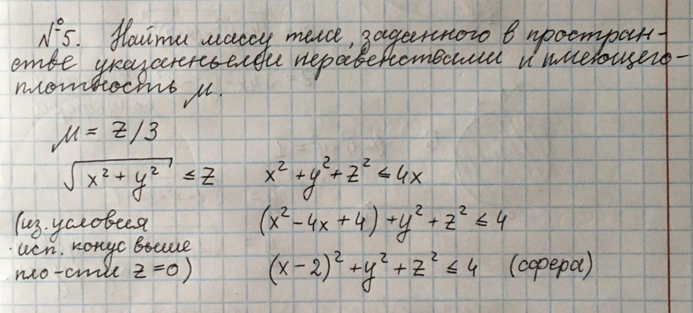 №5. Найти массу тела, заданного в простран-
стве указанными неравенствами и имеющего-
плотность μ.
μ = z/3
√x² + y² ≤ z x² + y² + z² ≤ 4x
(из условия (x² - 4x + 4) + y² + z² ≤ 4
исп. конус выше
пло-сти z = 0) (x - 2)² + y² + z² ≤ 4 (сфера)